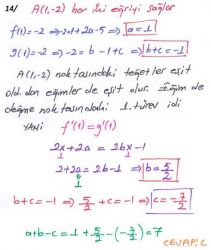 14/ A(1,-2) her iki eğriyi sağlar
f(1)=-2 ⇒ -2=1+2a-5 ⇒ a=1
g(1)=-2 ⇒ -2=b-1+c ⇒ b+c=-1
A(1,-2) noktasındaki teğetler eşit
old.dan eğimler de eşit olur. Eğim de
değme noktasındaki 1.türev idi
YANİ f'(1)=g'(1)
2x+2a = 2bx-1
1 1
2+2a = 2b-1 ⇒ b=5/2
b+c=-1 ⇒ 5/2+c=-1 ⇒ c=-7/2
a+b-c = 1+5/2-(-7/2)=7
CEVAP: C